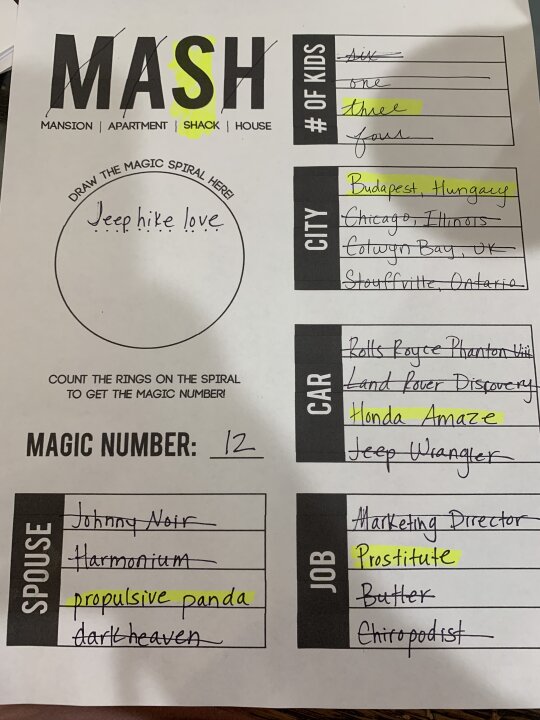 MASH
MANSION | APARTMENT | SHACK | HOUSE
DRAW THE MAGIC SPIRAL HERE!
Jeep hike love
COUNT THE RINGS ON THE SPIRAL
TO GET THE MAGIC NUMBER!
MAGIC NUMBER: 12
# OF KIDS
six
one
three
four
CITY
Budapest, Hungary
Chicago, Illinois
Colwyn Bay, UK
Stouffville, Ontario
CAR
Rolls Royce Phanton Viii
Land Rover Discovery
Honda Amaze
Jeep Wrangler
SPOUSE
Johnny Noir
Harmonium
propulsive panda
darkheaven
JOB
Marketing Director
Prostitute
Butler
Chiropodist